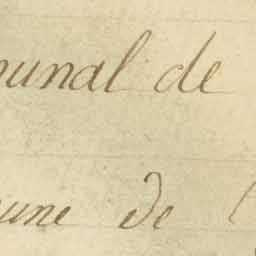 bunal de
mune de